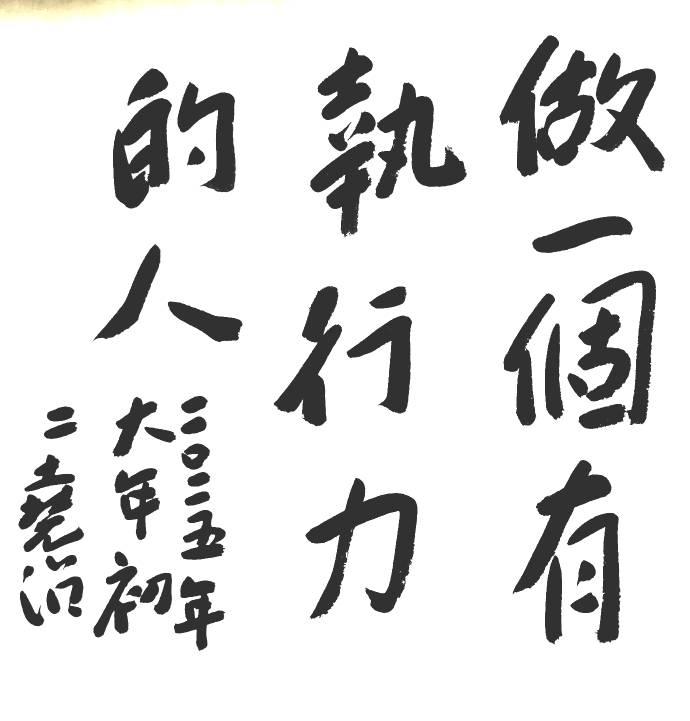 做一個有
執行力
的人
二〇二五年
大年初
二堯